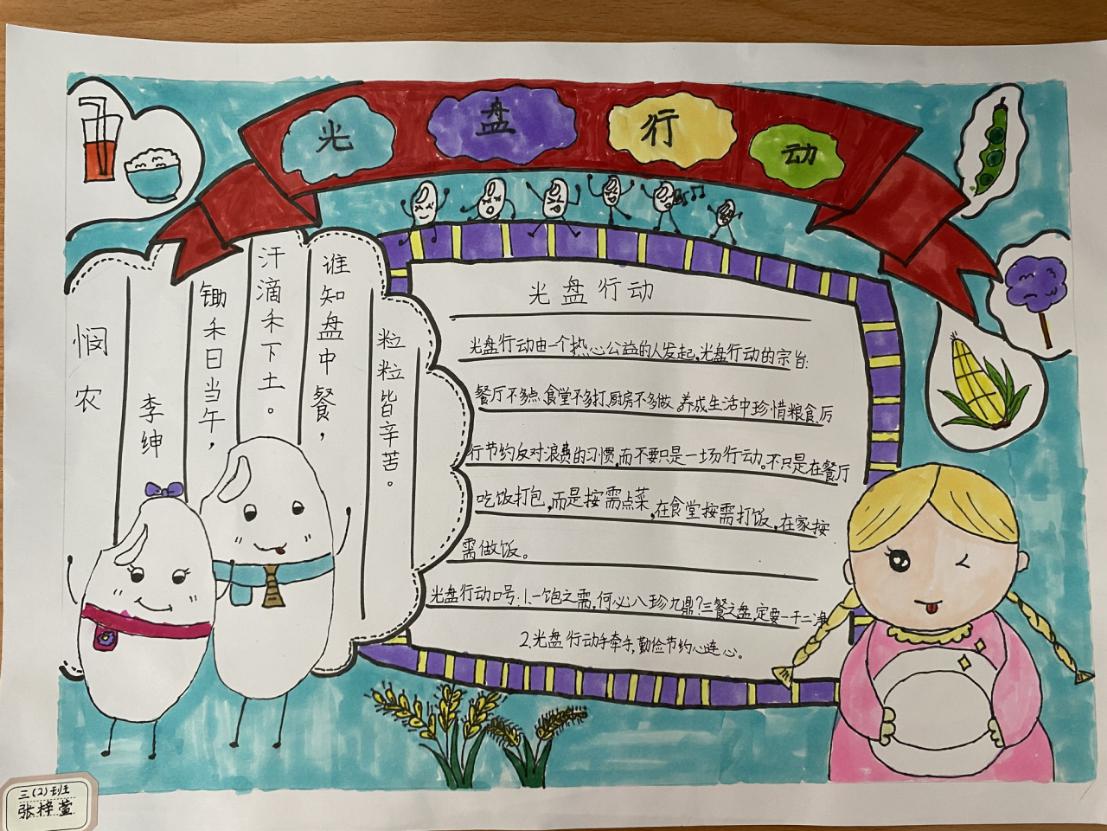 光盘行动
悯农
李绅
锄禾日当午，
汗滴禾下土。
谁知盘中餐，
粒粒皆辛苦。
光盘行动
光盘行动由一个热心公益的人发起，光盘行动的宗旨：
餐厅不多点、食堂不多打、厨房不多做。养成生活中珍惜粮食，厉
行节约反对浪费的习惯，而不要只是一场行动。不只是在餐厅
吃饭打包，而是按需点菜，在食堂按需打饭，在家按
需做饭。
光盘行动口号：1、一饱之需，何必八珍九鼎？三餐之盘，定要一干二净
2.光盘行动手牵手，勤俭节约心连心。
三(2)班
张梓萱